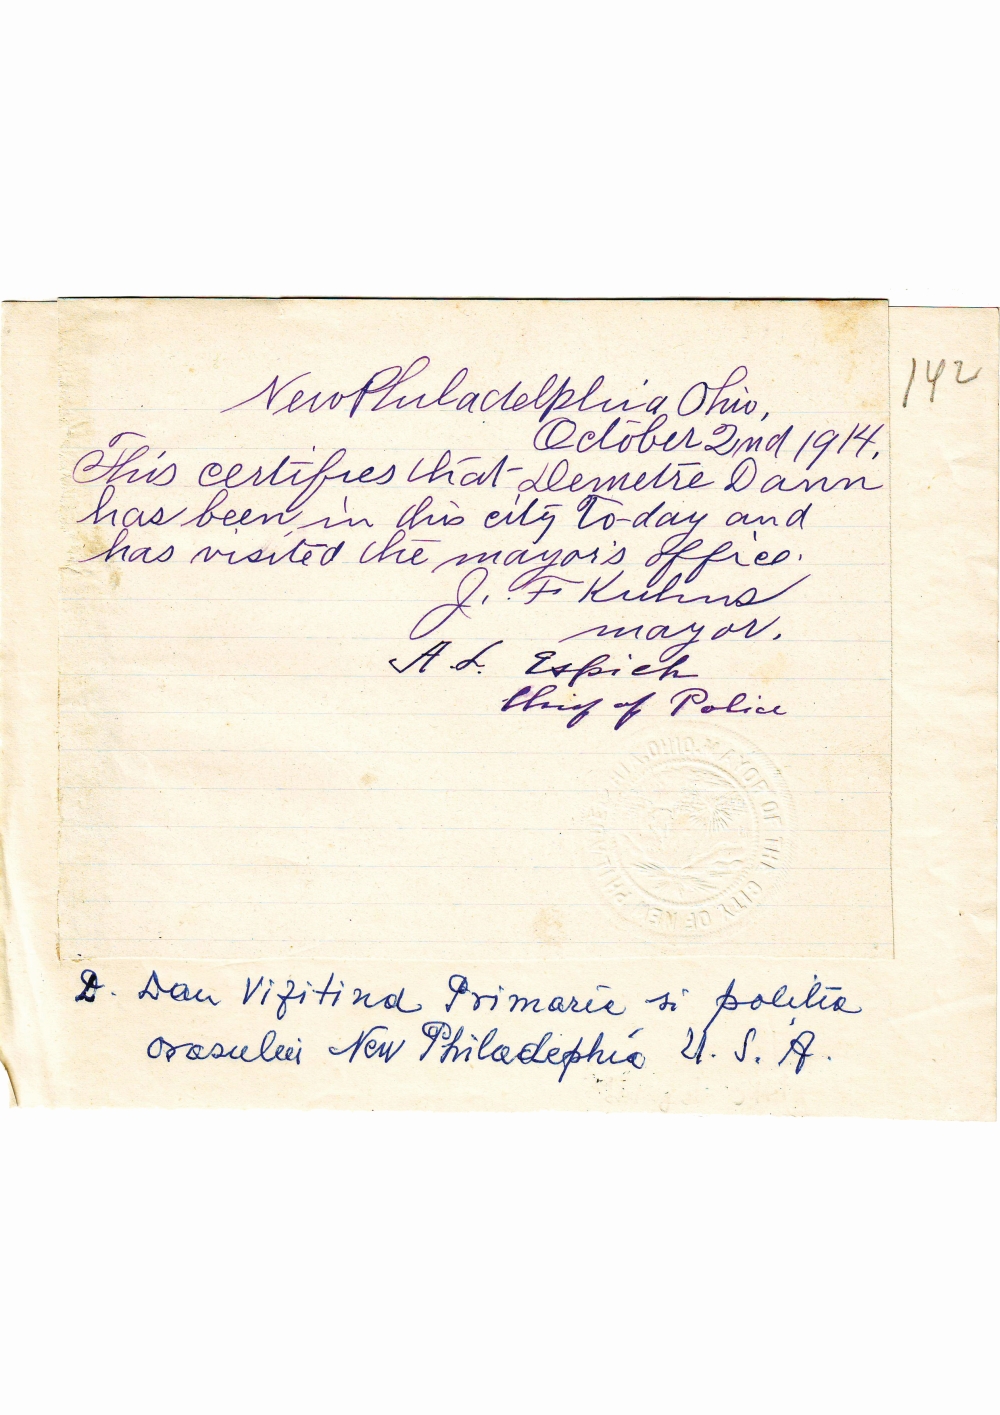 New Philadelphia, Ohio,
142
October 2nd 1914.
This certifies that Demetre Dann
has been in this city to-day and
has visited the mayor's office.
J. F. Kuhns
mayor.
A. L. Espich
Chief of Police
MAYOR OF THE CITY OF NEW PHILADELPHIA, OHIO.
D. Dan Vizitind Primaria si politia
orasului New Philadephia U. S. A.